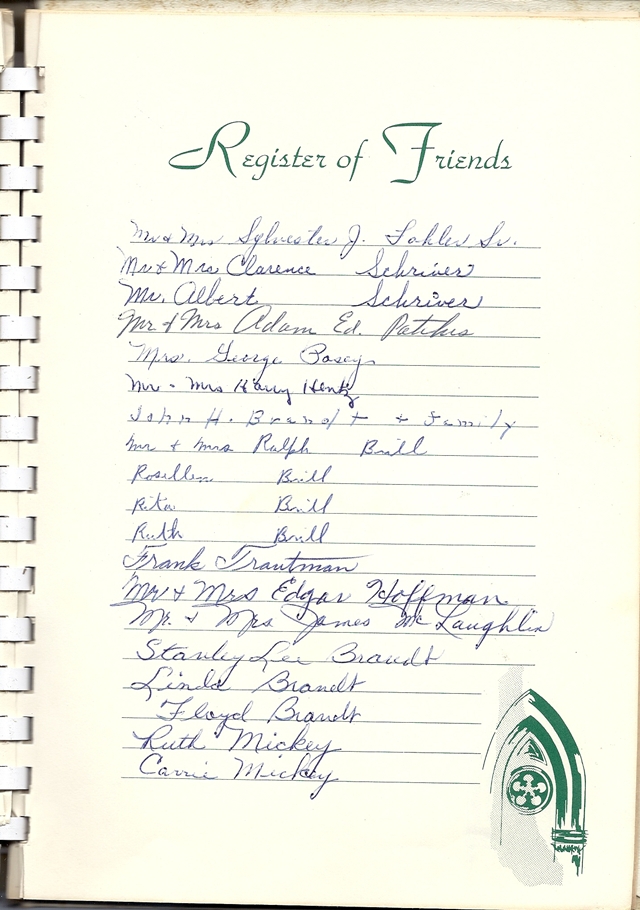 Register of Friends
Mr & Mrs Sylvester J. Fahler Sr.
Mr & Mrs Clarence Schriver
Mr. Albert Schriver
Mr & Mrs Adam Ed.
Mrs. George Posey
Mr - Mrs Harry Hentz
John H. Brandt + Family
Mr + Mrs Ralph Brill
Rosellen Brill
Rita Brill
Ruth Brill
Frank Trautman
Mr & Mrs Edgar Hoffman
Mr. & Mrs James McLaughlin
Stanley Lee Brandt
Linda Brandt
Floyd Brandt
Ruth Mickey
Carrie Mickey